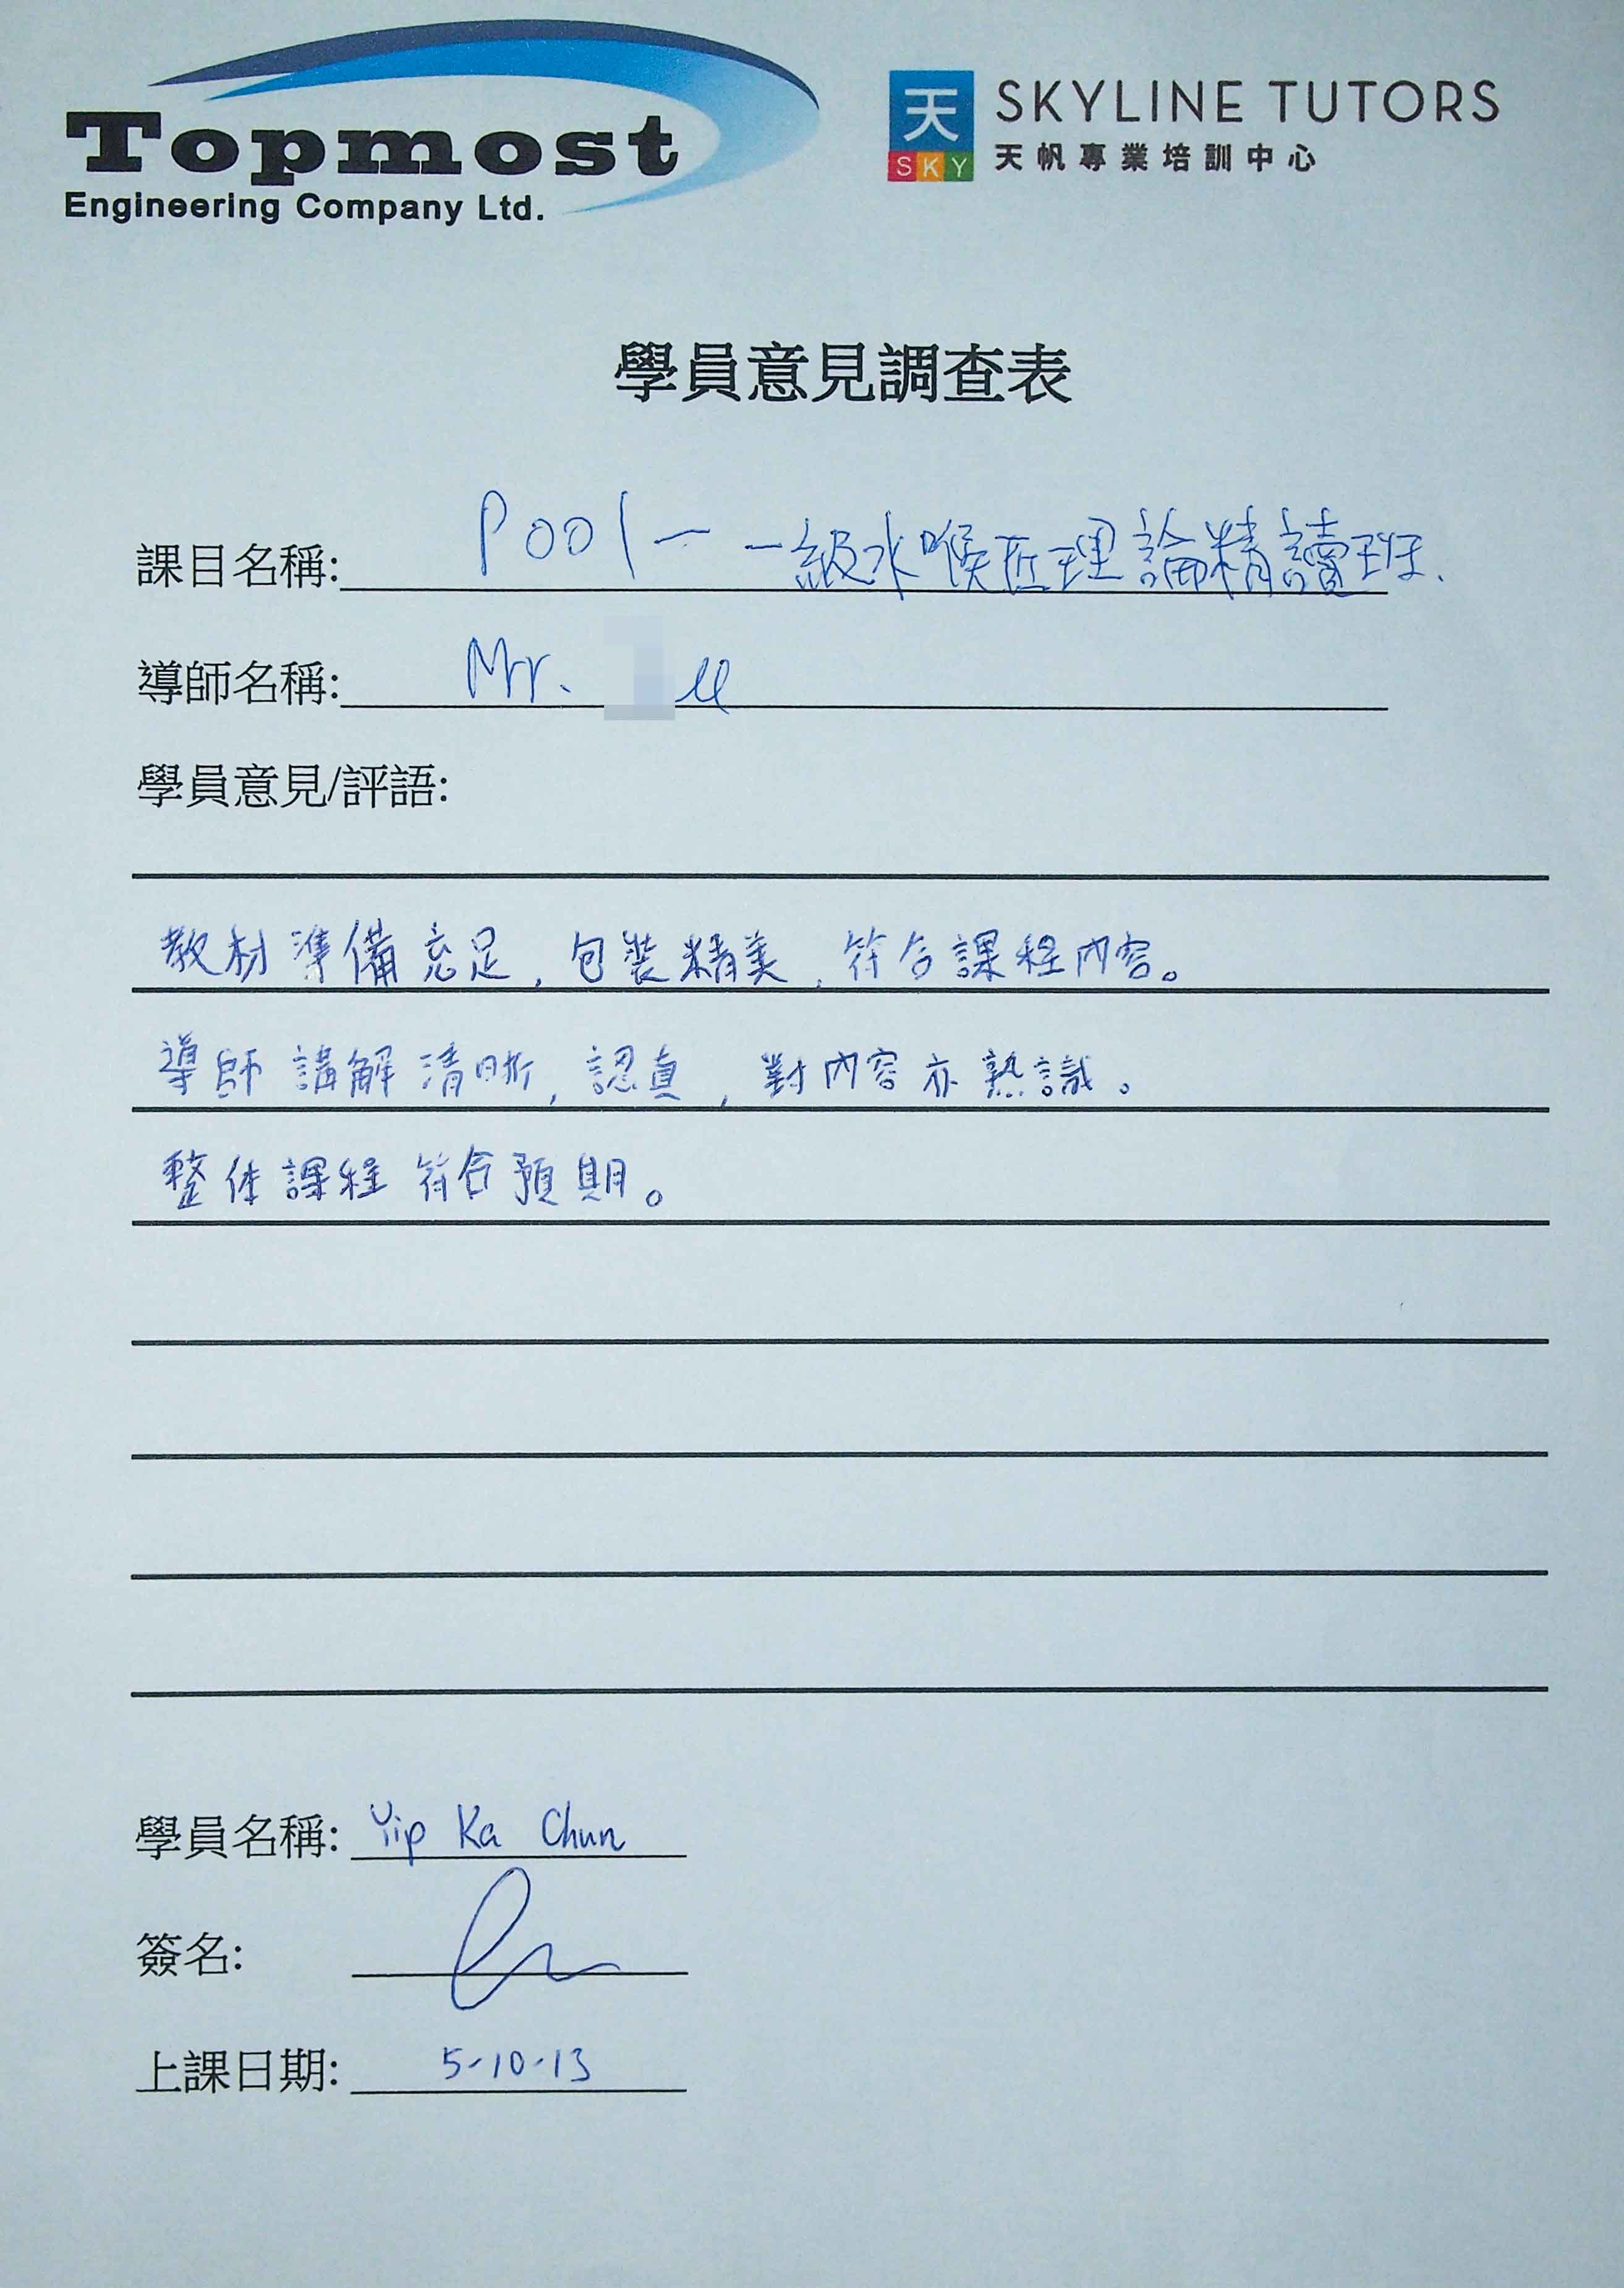 Topmost
Engineering Company Ltd.
天 SKY
SKYLINE TUTORS
天帆專業培訓中心
學員意見調查表
課目名稱: P001 — 一級水喉匠理論精讀班.
導師名稱: Mr.
學員意見/評語:
教材準備充足, 包裝精美, 符合課程內容。
導師講解清晰, 認真, 對內容亦熟識。
整体課程符合預期。
學員名稱: Yip Ka Chun
簽名:
上課日期: 5-10-13